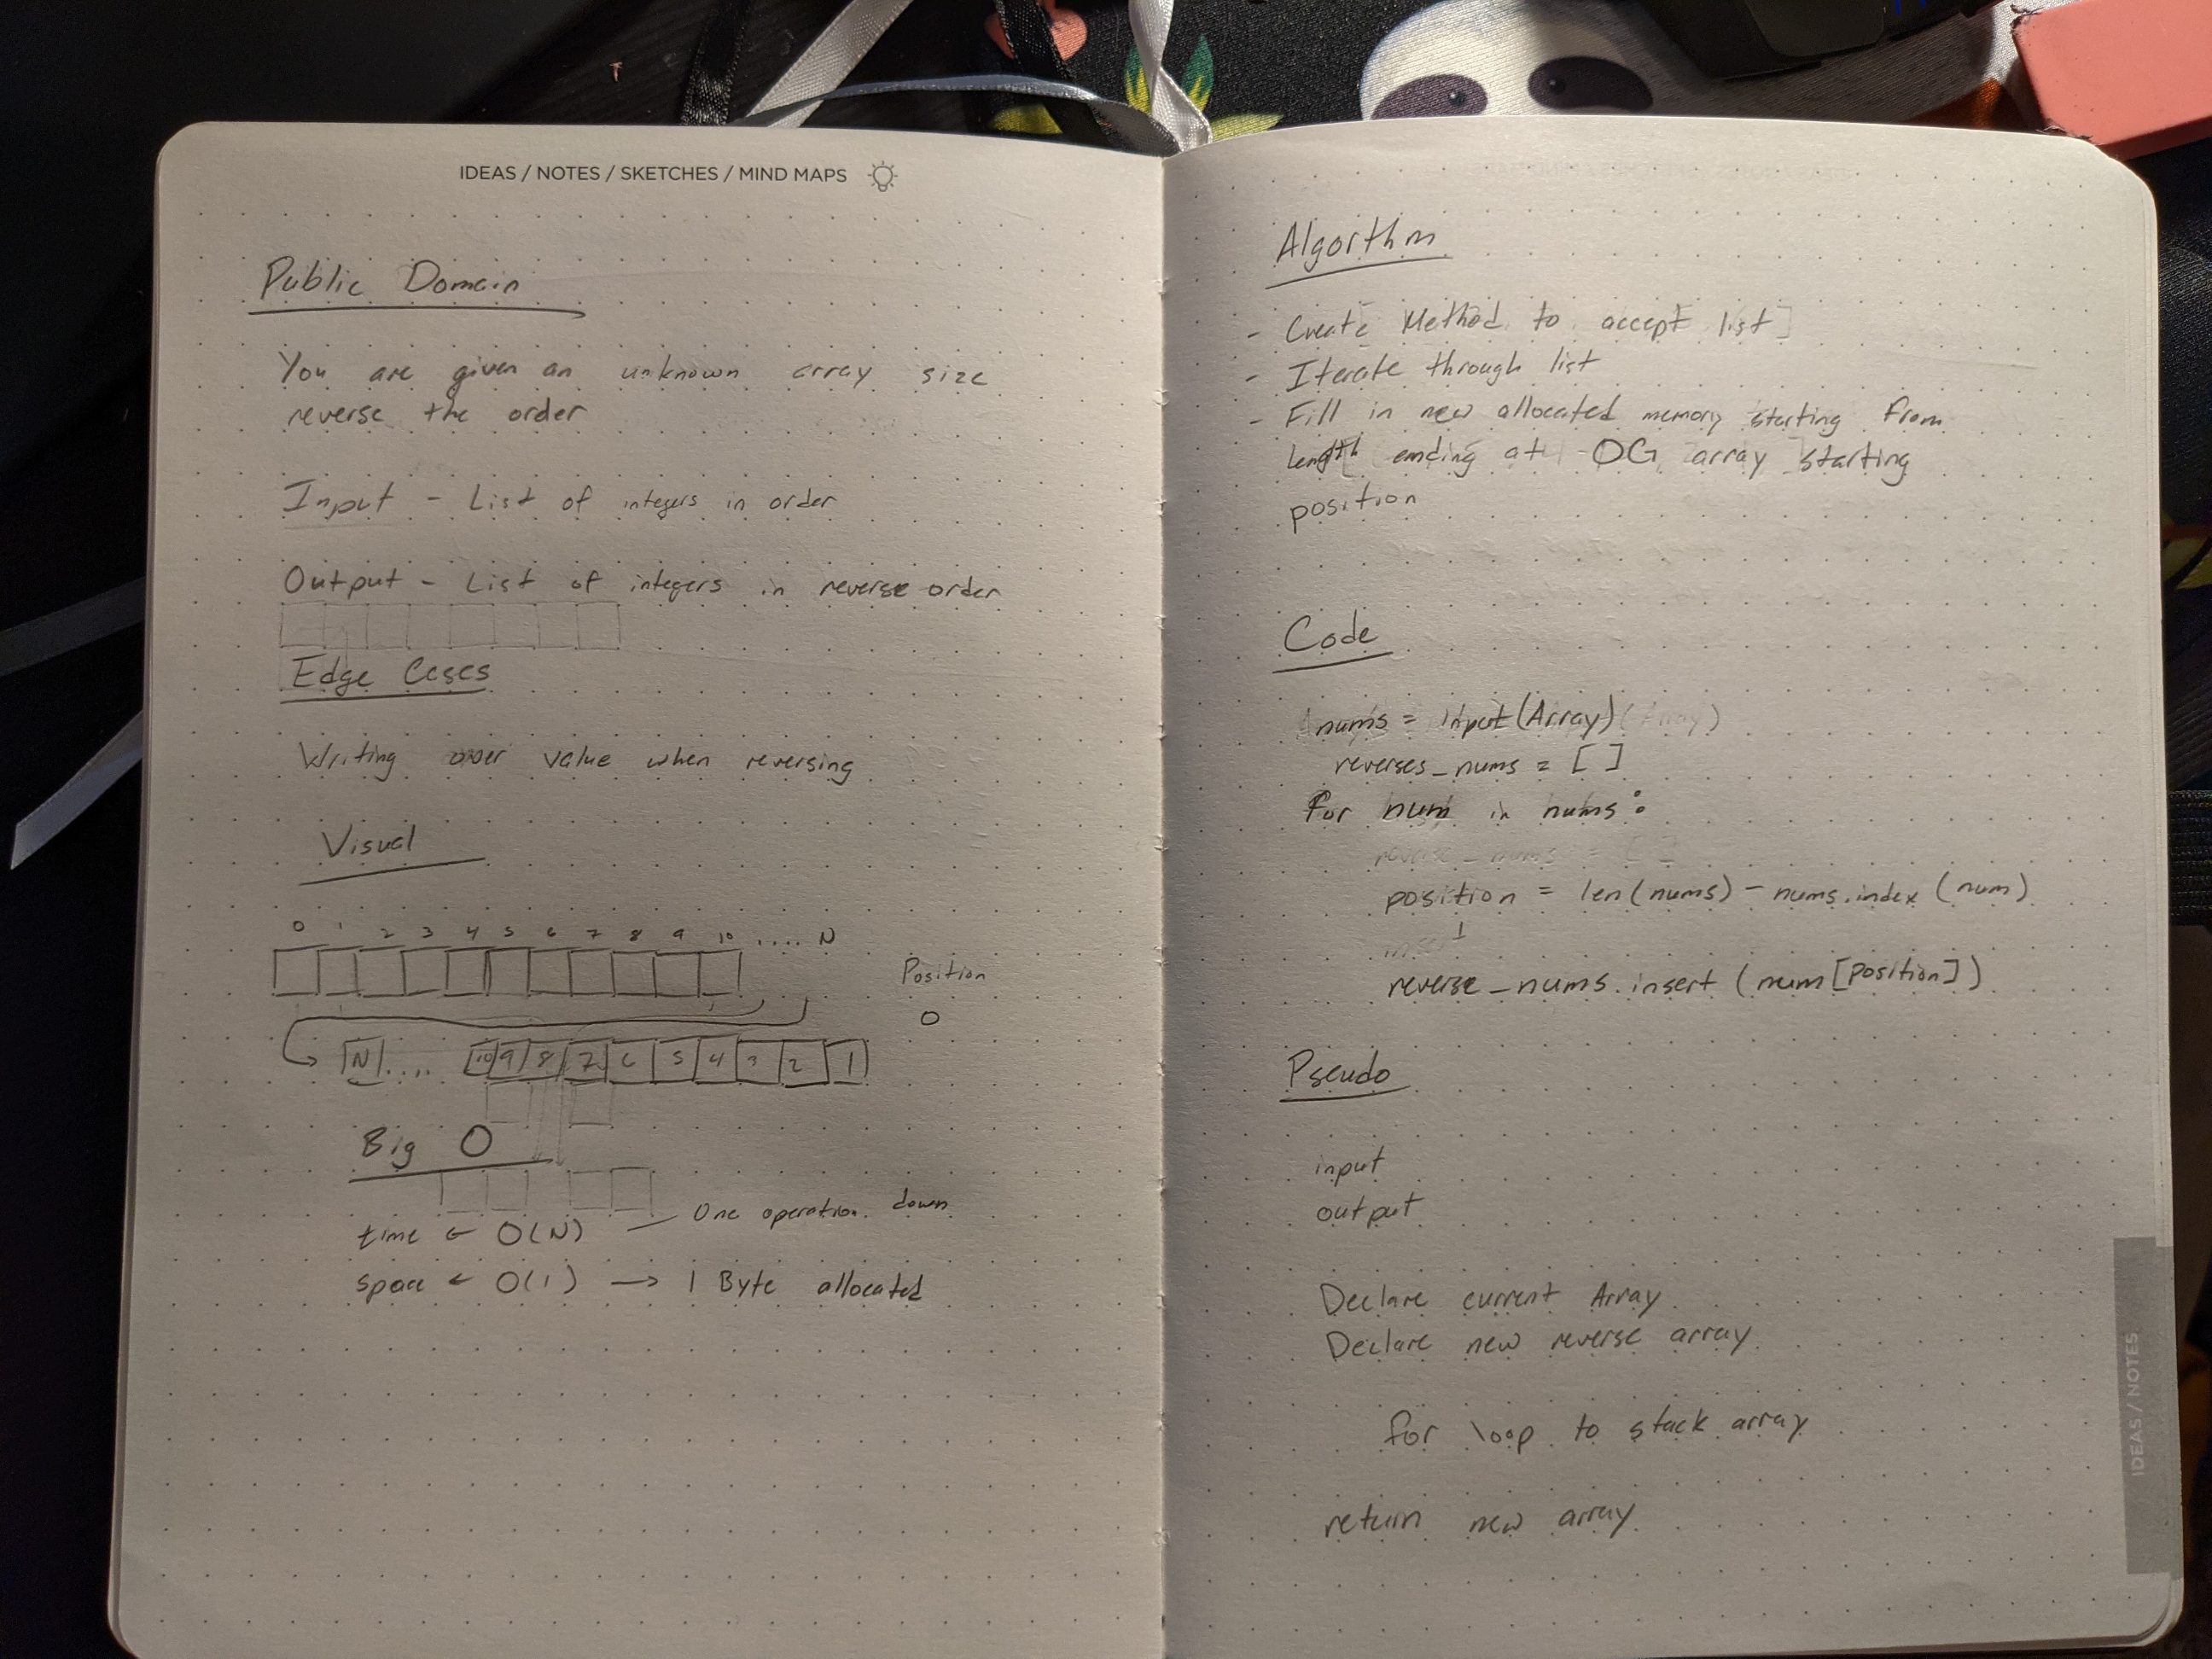 IDEAS / NOTES / SKETCHES / MIND MAPS
Public Domain
You are given an unknown array size
reverse the order
Input - List of integers in order
Output - List of integers in reverse order
Edge Cases
Writing over value when reversing
Visual
0 1 2 3 4 5 6 7 8 9 10 .... N
Position
0
N .... 10 9 8 7 6 5 4 3 2 1
Big O
time ← O(N) — One operation down
space ← O(1) → 1 Byte allocated
Algorithm
- Create Method to accept list
- Iterate through list
- Fill in new allocated memory starting from
length ending at OG array starting
position
Code
nums = input(Array)(Array)
reverses_nums = [ ]
for num in nums:
reverse_nums = [ ]
position = len(nums) - nums.index(num)
reverse_nums.insert(num[position])
Pseudo
input
output
Declare current Array
Declare new reverse array
for loop to stack array
return new array
IDEAS / NOTES